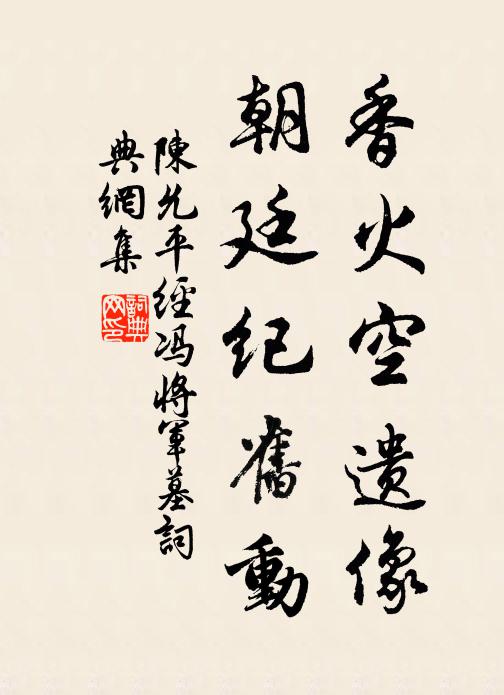 香火空遺像
朝廷紀舊動
陳允平經馮將軍墓詞
典網集
詞典網印